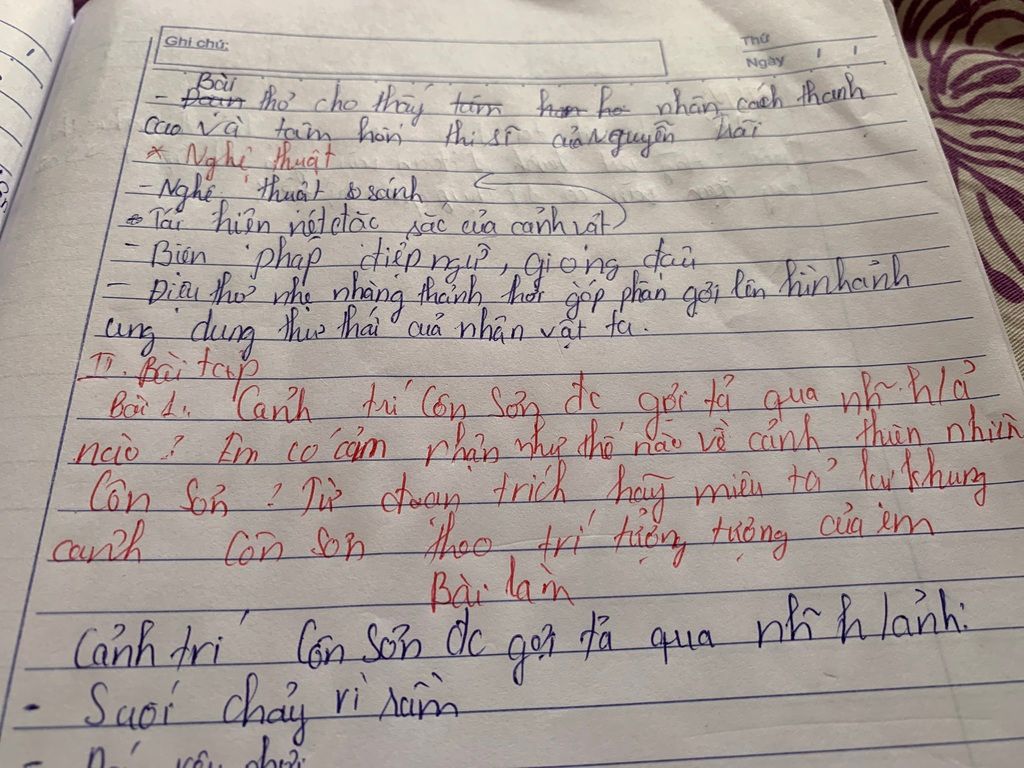 Ghi chú:
Thứ
Ngày
Bài
- Đoạn thơ cho thấy tâm hơn ho nhân cách thanh
cao và tâm hồn thi sĩ của Nguyễn Trãi
* Nghệ thuật
- Nghệ thuật so sánh
- Tái hiện nét đặc sắc của cảnh vật
- Biện pháp điệp ngữ, giọng đậu
- Điệu thơ nhẹ nhàng thảnh thơi góp phần gợi lên hình ảnh
ung dung thư thái của nhân vật ta.
II. Bài tập
Bài 1: Cảnh trí Côn Sơn đc gợi tả qua nh~ h/ả
nào? Em có cảm nhận như thế nào về cảnh thiên nhiên
Côn Sơn? Từ đoạn trích hãy miêu tả lại khung
cảnh Côn Sơn theo trí tưởng tượng của em
Bài làm
Cảnh trí Côn Sơn đc gợi tả qua nh~ h/ảnh:
- Suối chảy rì rầm